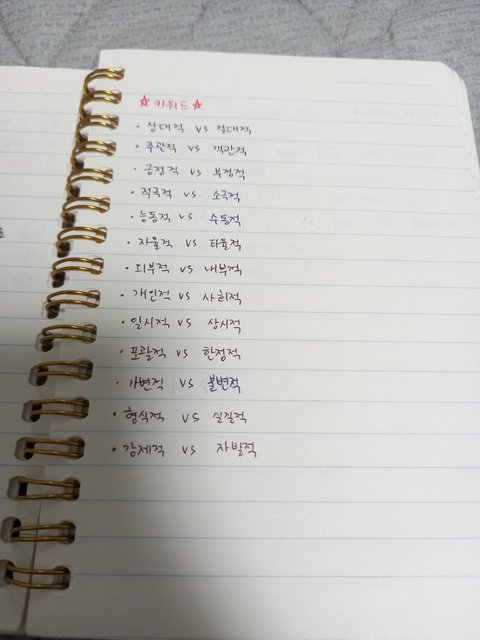 ☆키워드☆
· 상대적 vs 절대적
· 주관적 vs 객관적
· 긍정적 vs 부정적
· 적극적 vs 소극적
· 능동적 vs 수동적
· 자율적 vs 타율적
· 피부적 vs 내부적
· 개인적 vs 사회적
· 일시적 vs 상시적
· 포괄적 vs 한정적
· 가변적 vs 불변적
· 형식적 vs 실질적
· 강제적 vs 자발적